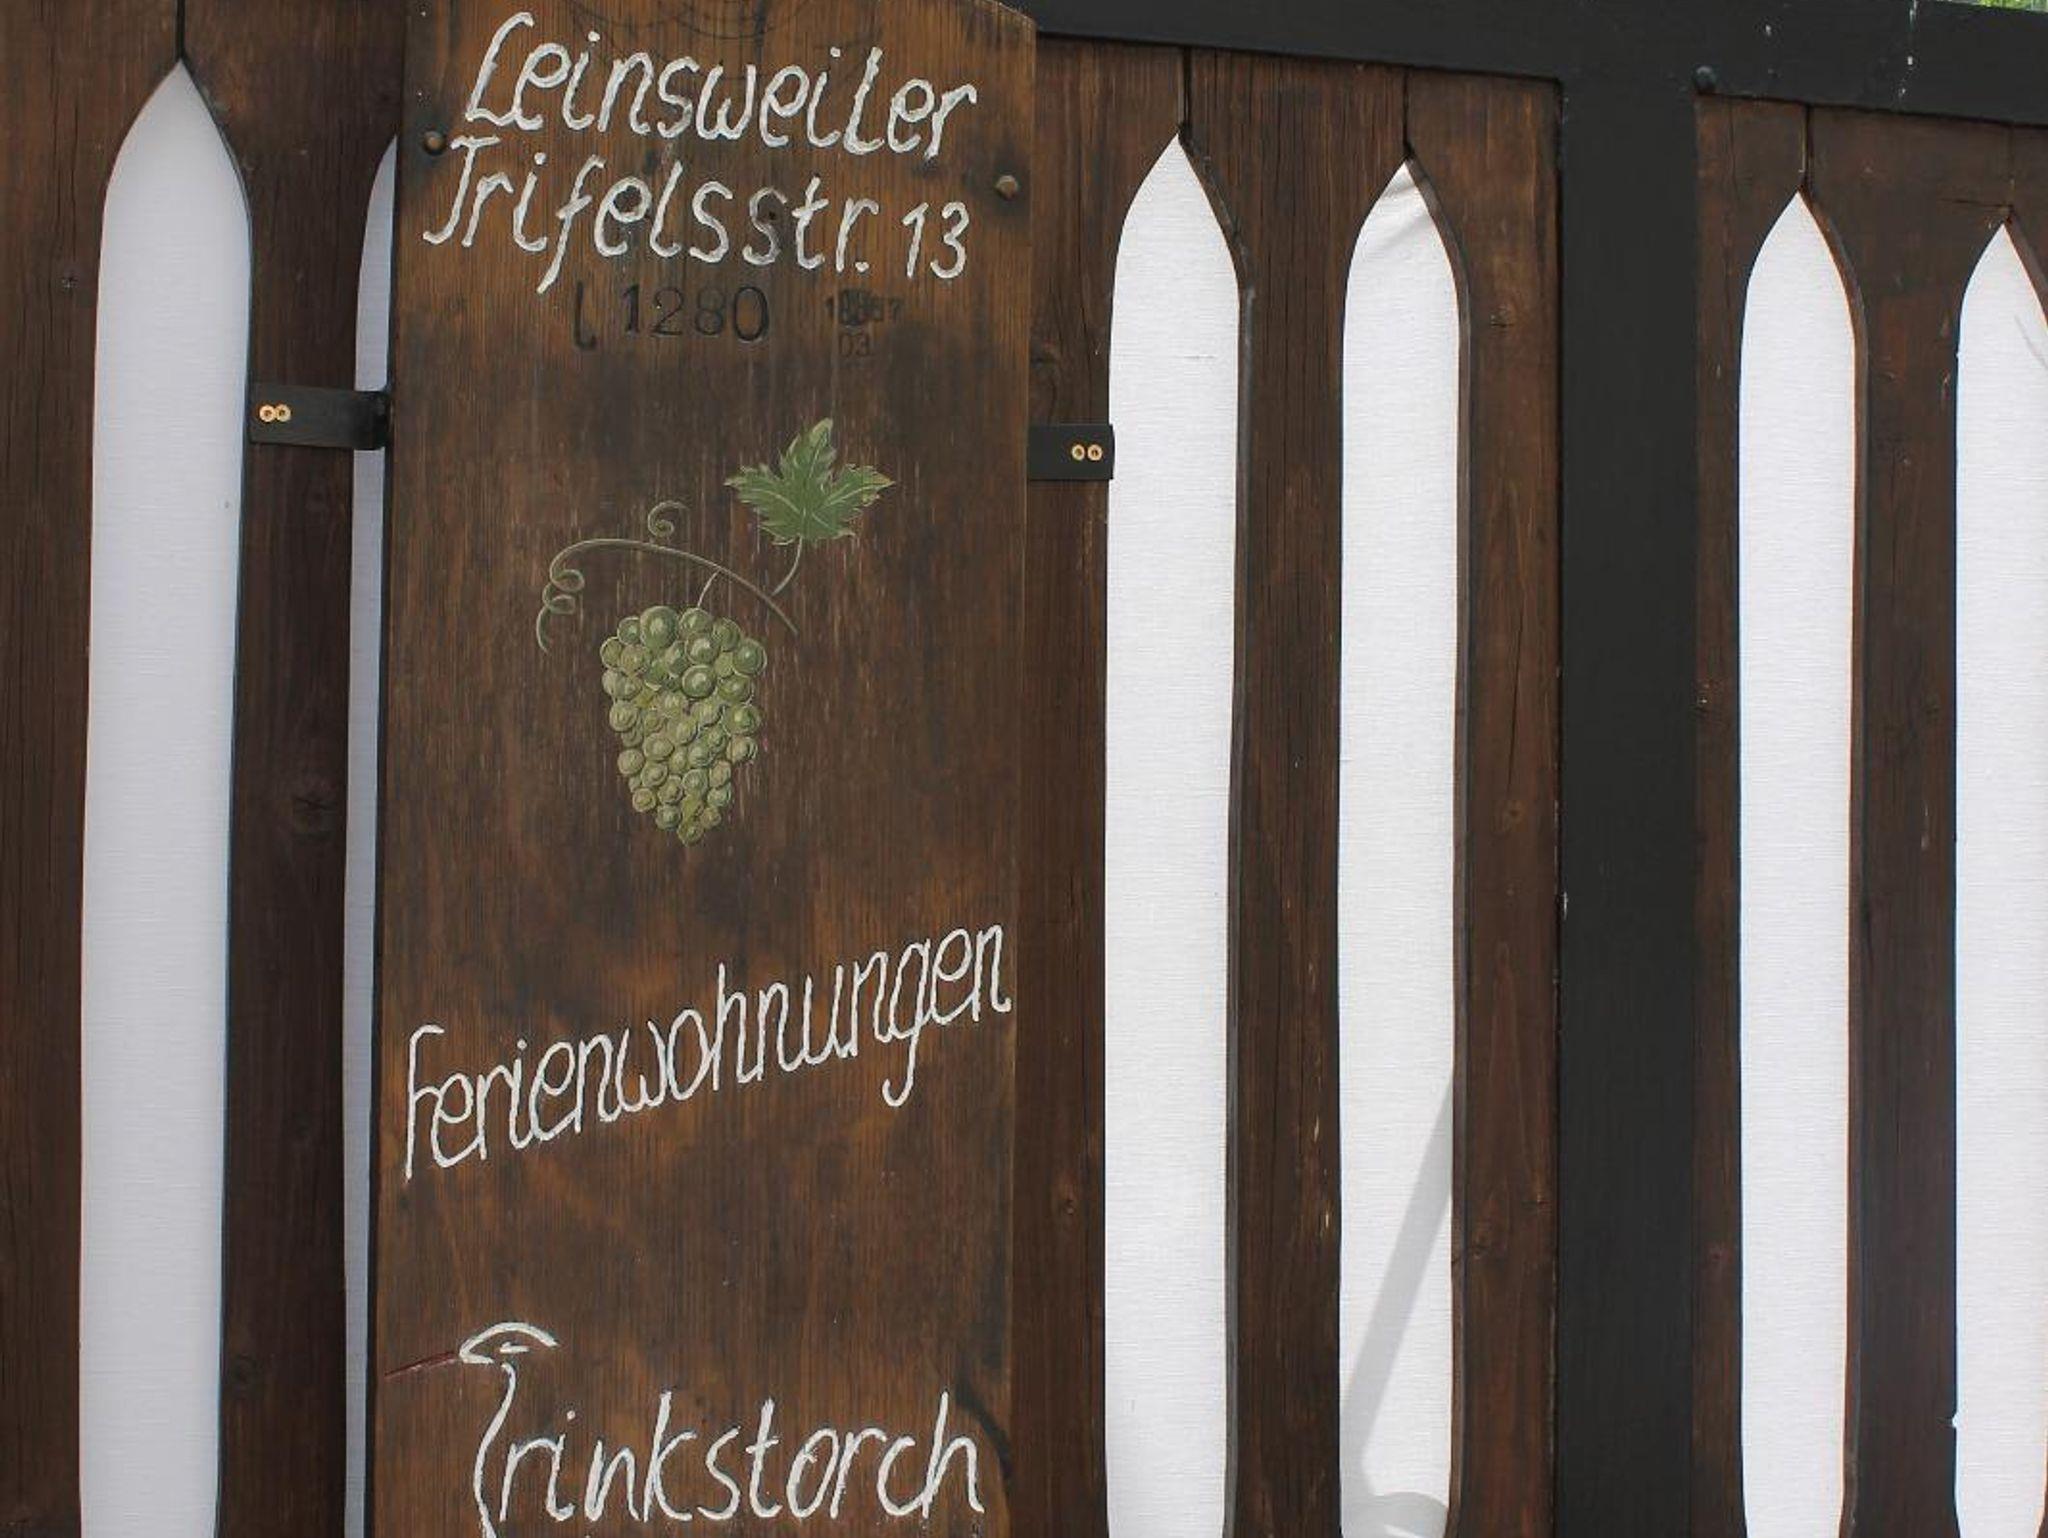 Leinsweiler
Trifelsstr. 13
l 1280
03
Ferienwohnungen
Trinkstorch